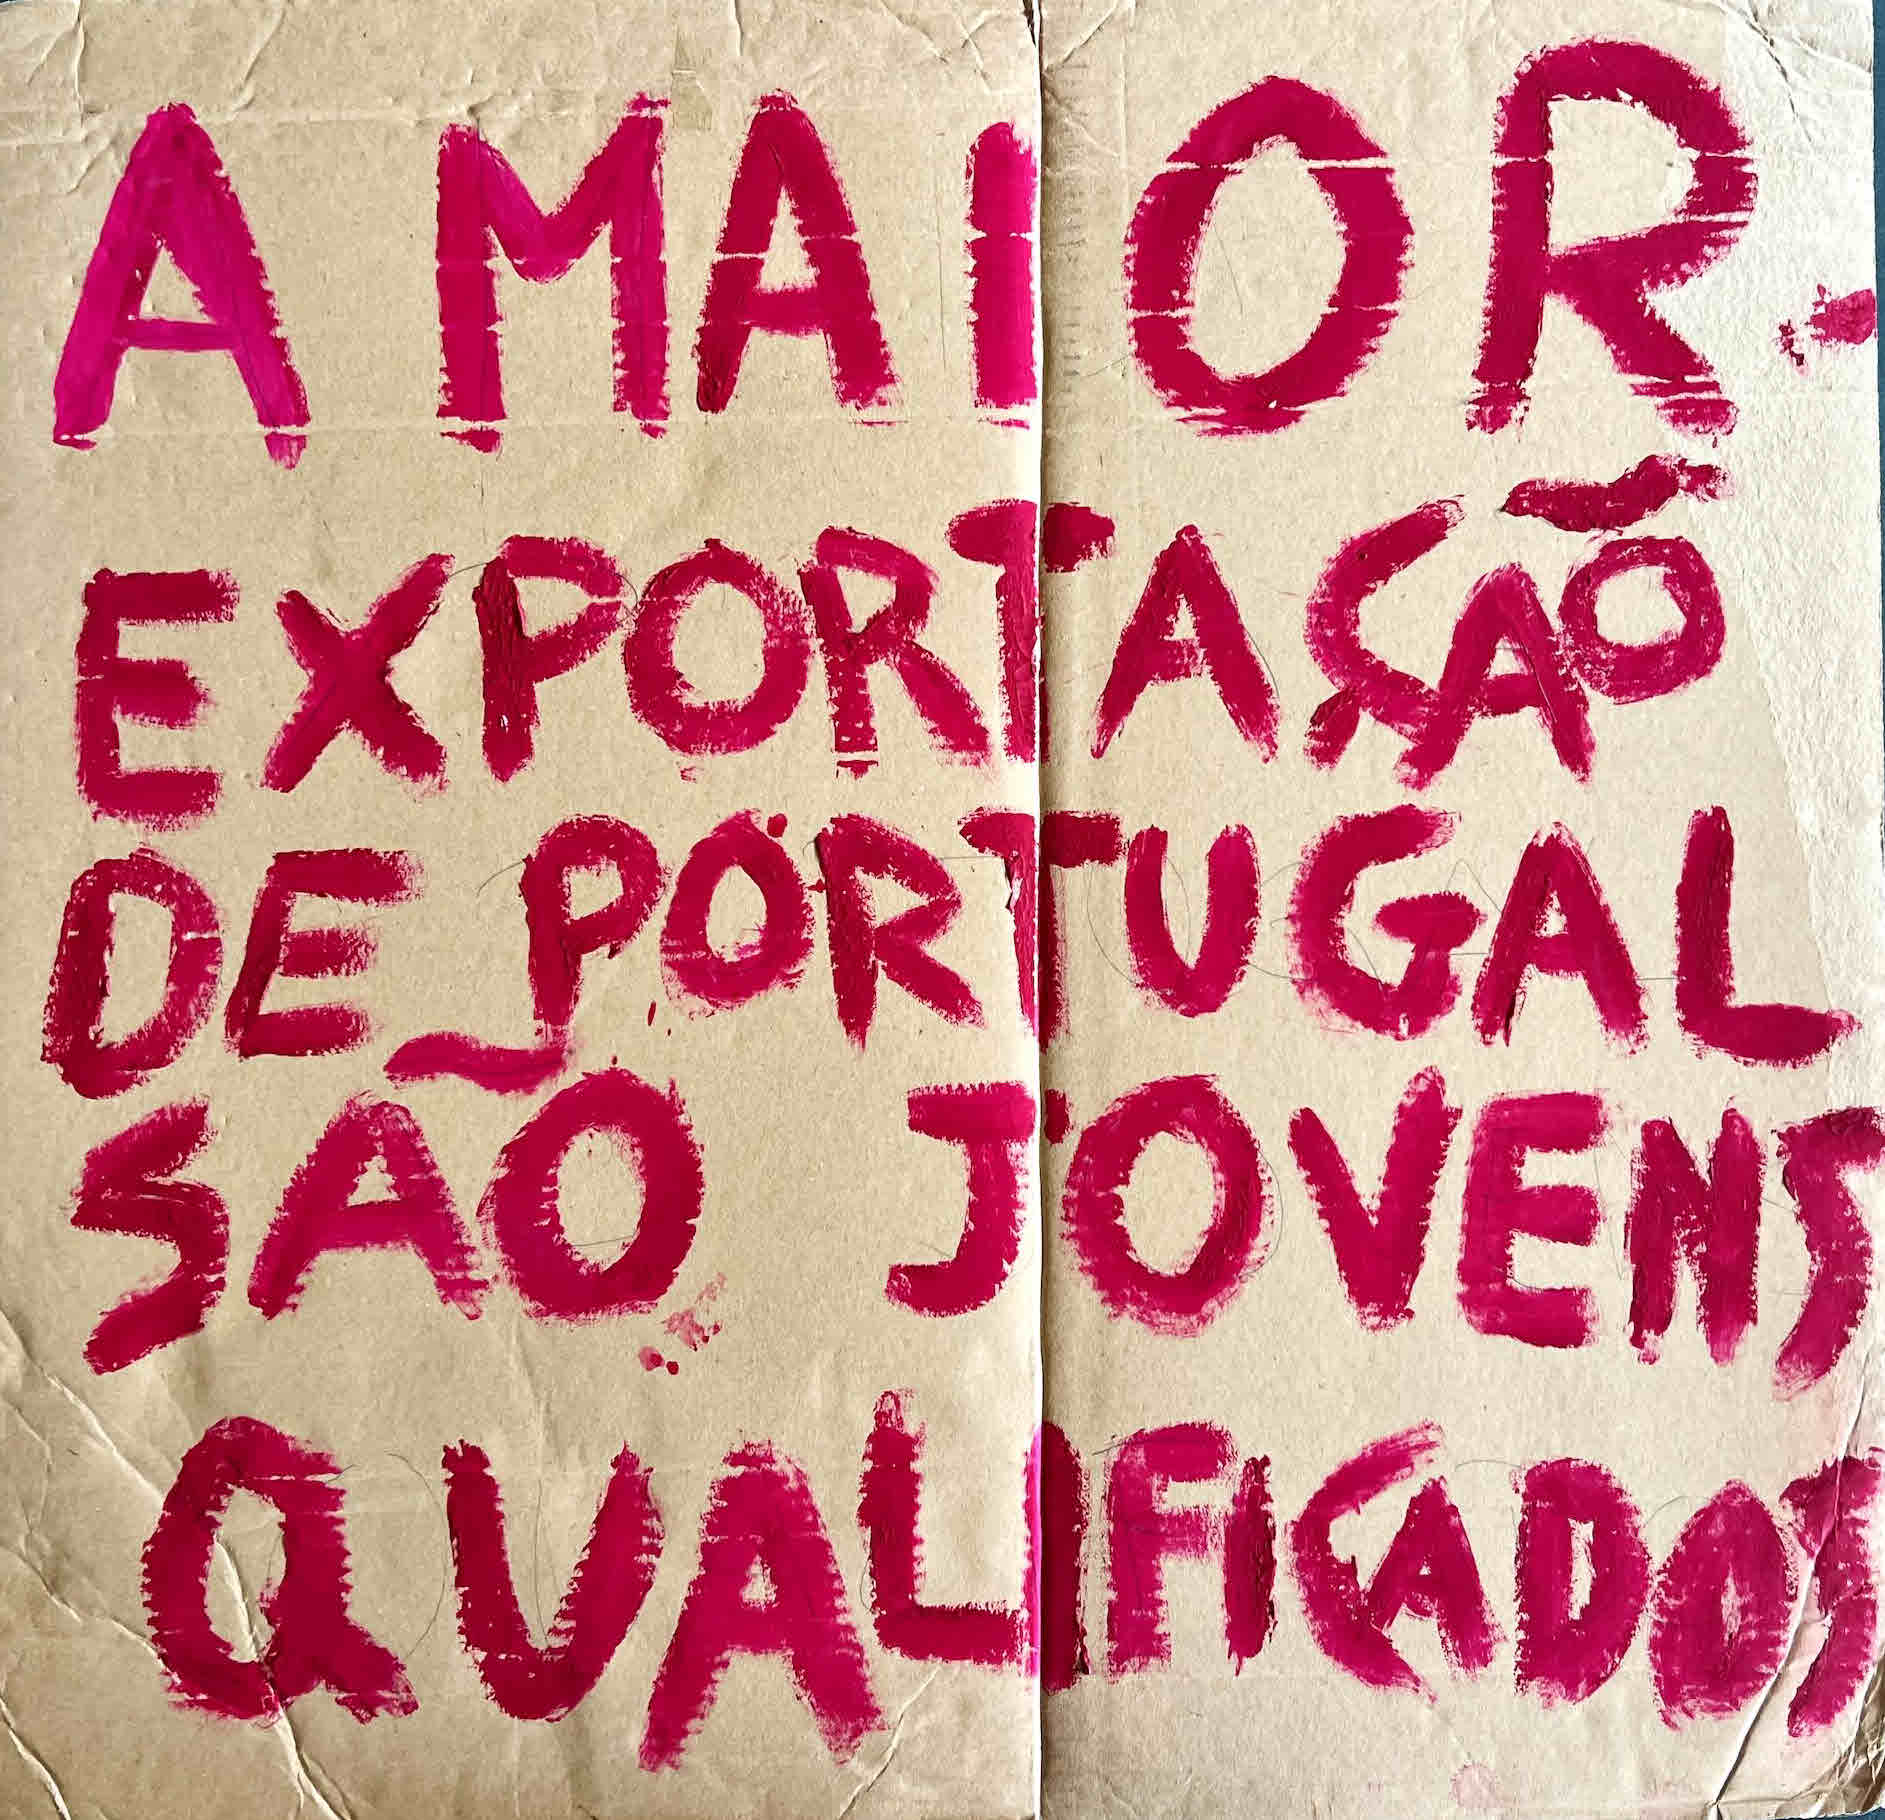 A MAIOR
EXPORTAÇÃO
DE PORTUGAL
SÃO JOVENS
QUALIFICADOS